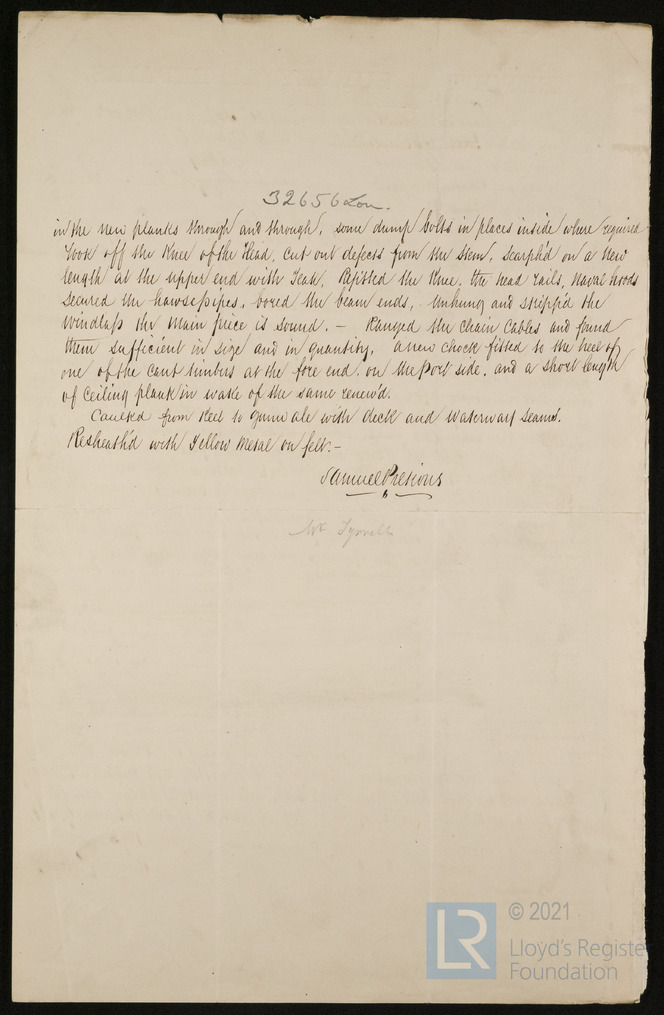 32656 Lon.
in the new planks through and through, some dump bolts in places inside where required
Took off the Knee of the Head, cut out defects from the Stem, Scarph'd on a New
length at the upper end with Teak, Refitted the Knee, the head rails, Naval hoods
Secured the hawse pipes, bored the beam ends, Unhung and stripp'd the
Windlass the Main piece is sound. — Ranged the Chain Cables and found
them sufficient in size and in quantity, a new chock fitted to the heel of
one of the cant timbers at the fore end, on the Port side, and a short length
of Ceiling plank in wake of the same renew'd.
Caulked from Keel to Gunwale with deck and Waterway Seams.
Resheath'd with Yellow Metal on felt. —
Samuel Pretious
Mr
© 2021
LR
Lloyd's Register
Foundation